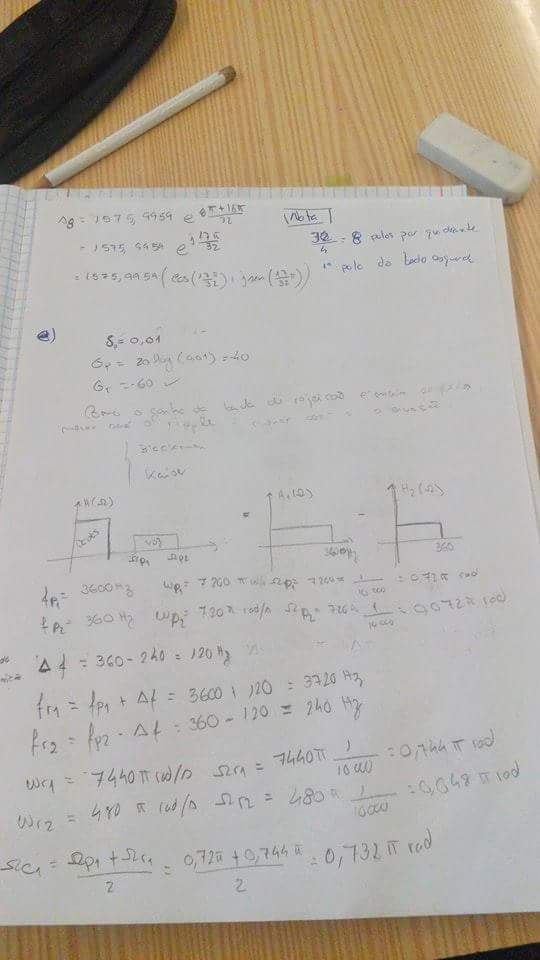 s8 = 1575,9959 e^(π+16π/32)
= 1575,9959 e^(j 17π/32)
= 1575,9959 (cos(17π/32) + jsen(17π/32))
Nota
32/4 = 8 polos por quadrante
1º polo do lado esquerdo
e)
δr = 0,01
Gp = 20 log(0,01) = -40
Gr = -60 ✓
Como o ganho da banda de rejeição é
ripple
Blackman
Kaiser
H(Ω)
voz
Ωp1 Ωp2
=
H1(Ω)
3600Hz
-
H2(Ω)
360
fp1 = 3600Hz wp1 = 7200π rad/s Ωp1 = 7200π 1/10000 = 0,72π rad
fp2 = 360 Hz wp2 = 720π rad/s Ωp2 = 720π 1/10000 = 0,072π rad
Δf = 360 - 240 = 120 Hz
fr1 = fp1 + Δf = 3600 + 120 = 3720 Hz
fr2 = fp2 - Δf = 360 - 120 = 240 Hz
wr1 = 7440π rad/s Ωr1 = 7440π 1/10000 = 0,744π rad
wr2 = 480 π rad/s Ωr2 = 480π 1/10000 = 0,048π rad
Ωc1 = Ωp1 + Ωr1/2 = 0,72π + 0,744π/2 = 0,732π rad